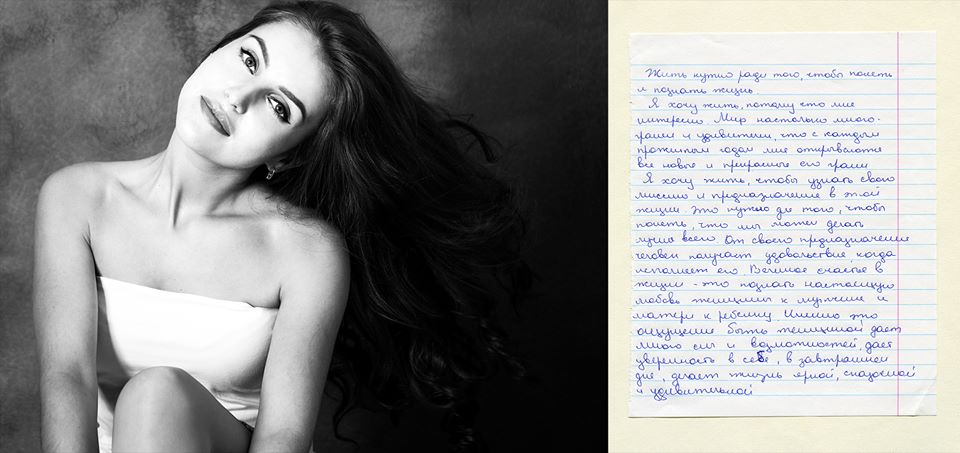 Жить нужно ради того, чтобы понять
и познать жизнь.
Я хочу жить, потому что мне
интересно. Мир настолько много-
гранен и удивителен, что с каждым
прожитым годом мне открываются
все новые и прекрасные его грани
Я хочу жить, чтобы узнать свою
миссию и предназначение в этой
жизни. Это нужно для того, чтобы
понять, что мы можем делать
лучше всего. От своего предназначения
человек получает удовольствие, когда
исполняет его. Великое счастье в
жизни - это познать настоящую
любовь женщины к мужчине и
матери к ребенку. Именно это
ощущение быть женщиной дает
много сил и возможностей, дает
уверенность в себе, в завтрашнем
дне, делает жизнь яркой, сказочной
и удивительной